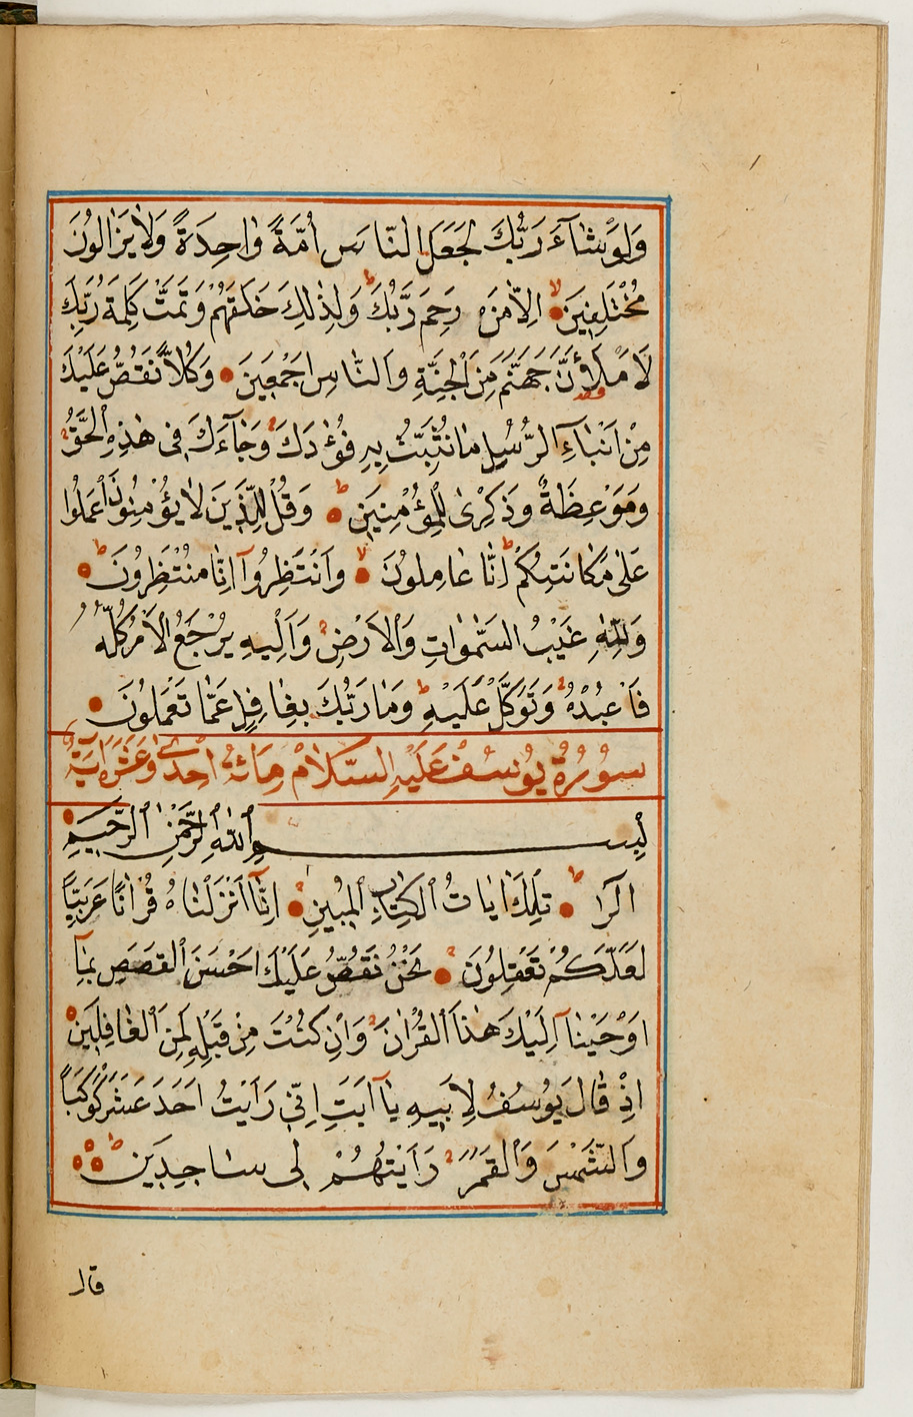 وَلَوْ شَآءَ رَبُّكَ لَجَعَلَ النَّاسَ اُمَّةً وَاحِدَةً وَلَا يَزَالُونَ
مُخْتَلِفِينَ اِلَّا مَنْ رَحِمَ رَبُّكَ وَلِذٰلِكَ خَلَقَهُمْ وَتَمَّتْ كَلِمَةُ رَبِّكَ
لَاَمْلَؤُنَّ جَهَنَّمَ مِنَ الْجِنَّةِ وَالنَّاسِ اَجْمَعِينَ وَكُلًّا نَقُصُّ عَلَيْكَ
مِنْ اَنْبَآءِ الرُّسُلِ مَا نُثَبِّتُ بِهِ فُؤٰدَكَ وَجَآءَكَ فِى هٰذِهِ الْحَقُّ
وَمَوْعِظَةٌ وَذِكْرٰى لِلْمُؤْمِنِينَ وَقُلْ لِلَّذِينَ لَا يُؤْمِنُونَ اعْمَلُوا
عَلٰى مَكَانَتِكُمْ اِنَّا عَامِلُونَ وَانْتَظِرُوآ اِنَّا مُنْتَظِرُونَ
وَلِلّٰهِ غَيْبُ السَّمٰوَاتِ وَالْاَرْضِ وَاِلَيْهِ يُرْجَعُ الْاَمْرُ كُلُّهُ
فَاعْبُدْهُ وَتَوَكَّلْ عَلَيْهِ وَمَا رَبُّكَ بِغَافِلٍ عَمَّا تَعْمَلُونَ
سُورَةُ يُوسُفَ عَلَيْهِ السَّلَامُ مِائَةٌ اِحْدٰى وَعَشَرَ اٰيَةً
بِسْمِ اللّٰهِ الرَّحْمٰنِ الرَّحِيمِ
الٓرٰ تِلْكَ اٰيَاتُ الْكِتَابِ الْمُبِينِ اِنَّآ اَنْزَلْنَاهُ قُرْاٰنًا عَرَبِيًّا
لَعَلَّكُمْ تَعْقِلُونَ نَحْنُ نَقُصُّ عَلَيْكَ اَحْسَنَ الْقَصَصِ بِمَآ
اَوْحَيْنَآ اِلَيْكَ هٰذَا الْقُرْاٰنَ وَاِنْ كُنْتَ مِنْ قَبْلِهِ لَمِنَ الْغَافِلِينَ
اِذْ قَالَ يُوسُفُ لِاَبِيهِ يَآ اَبَتِ اِنِّى رَاَيْتُ اَحَدَ عَشَرَ كَوْكَبًا
وَالشَّمْسَ وَالْقَمَرَ رَاَيْتُهُمْ لِى سَاجِدِينَ
قال